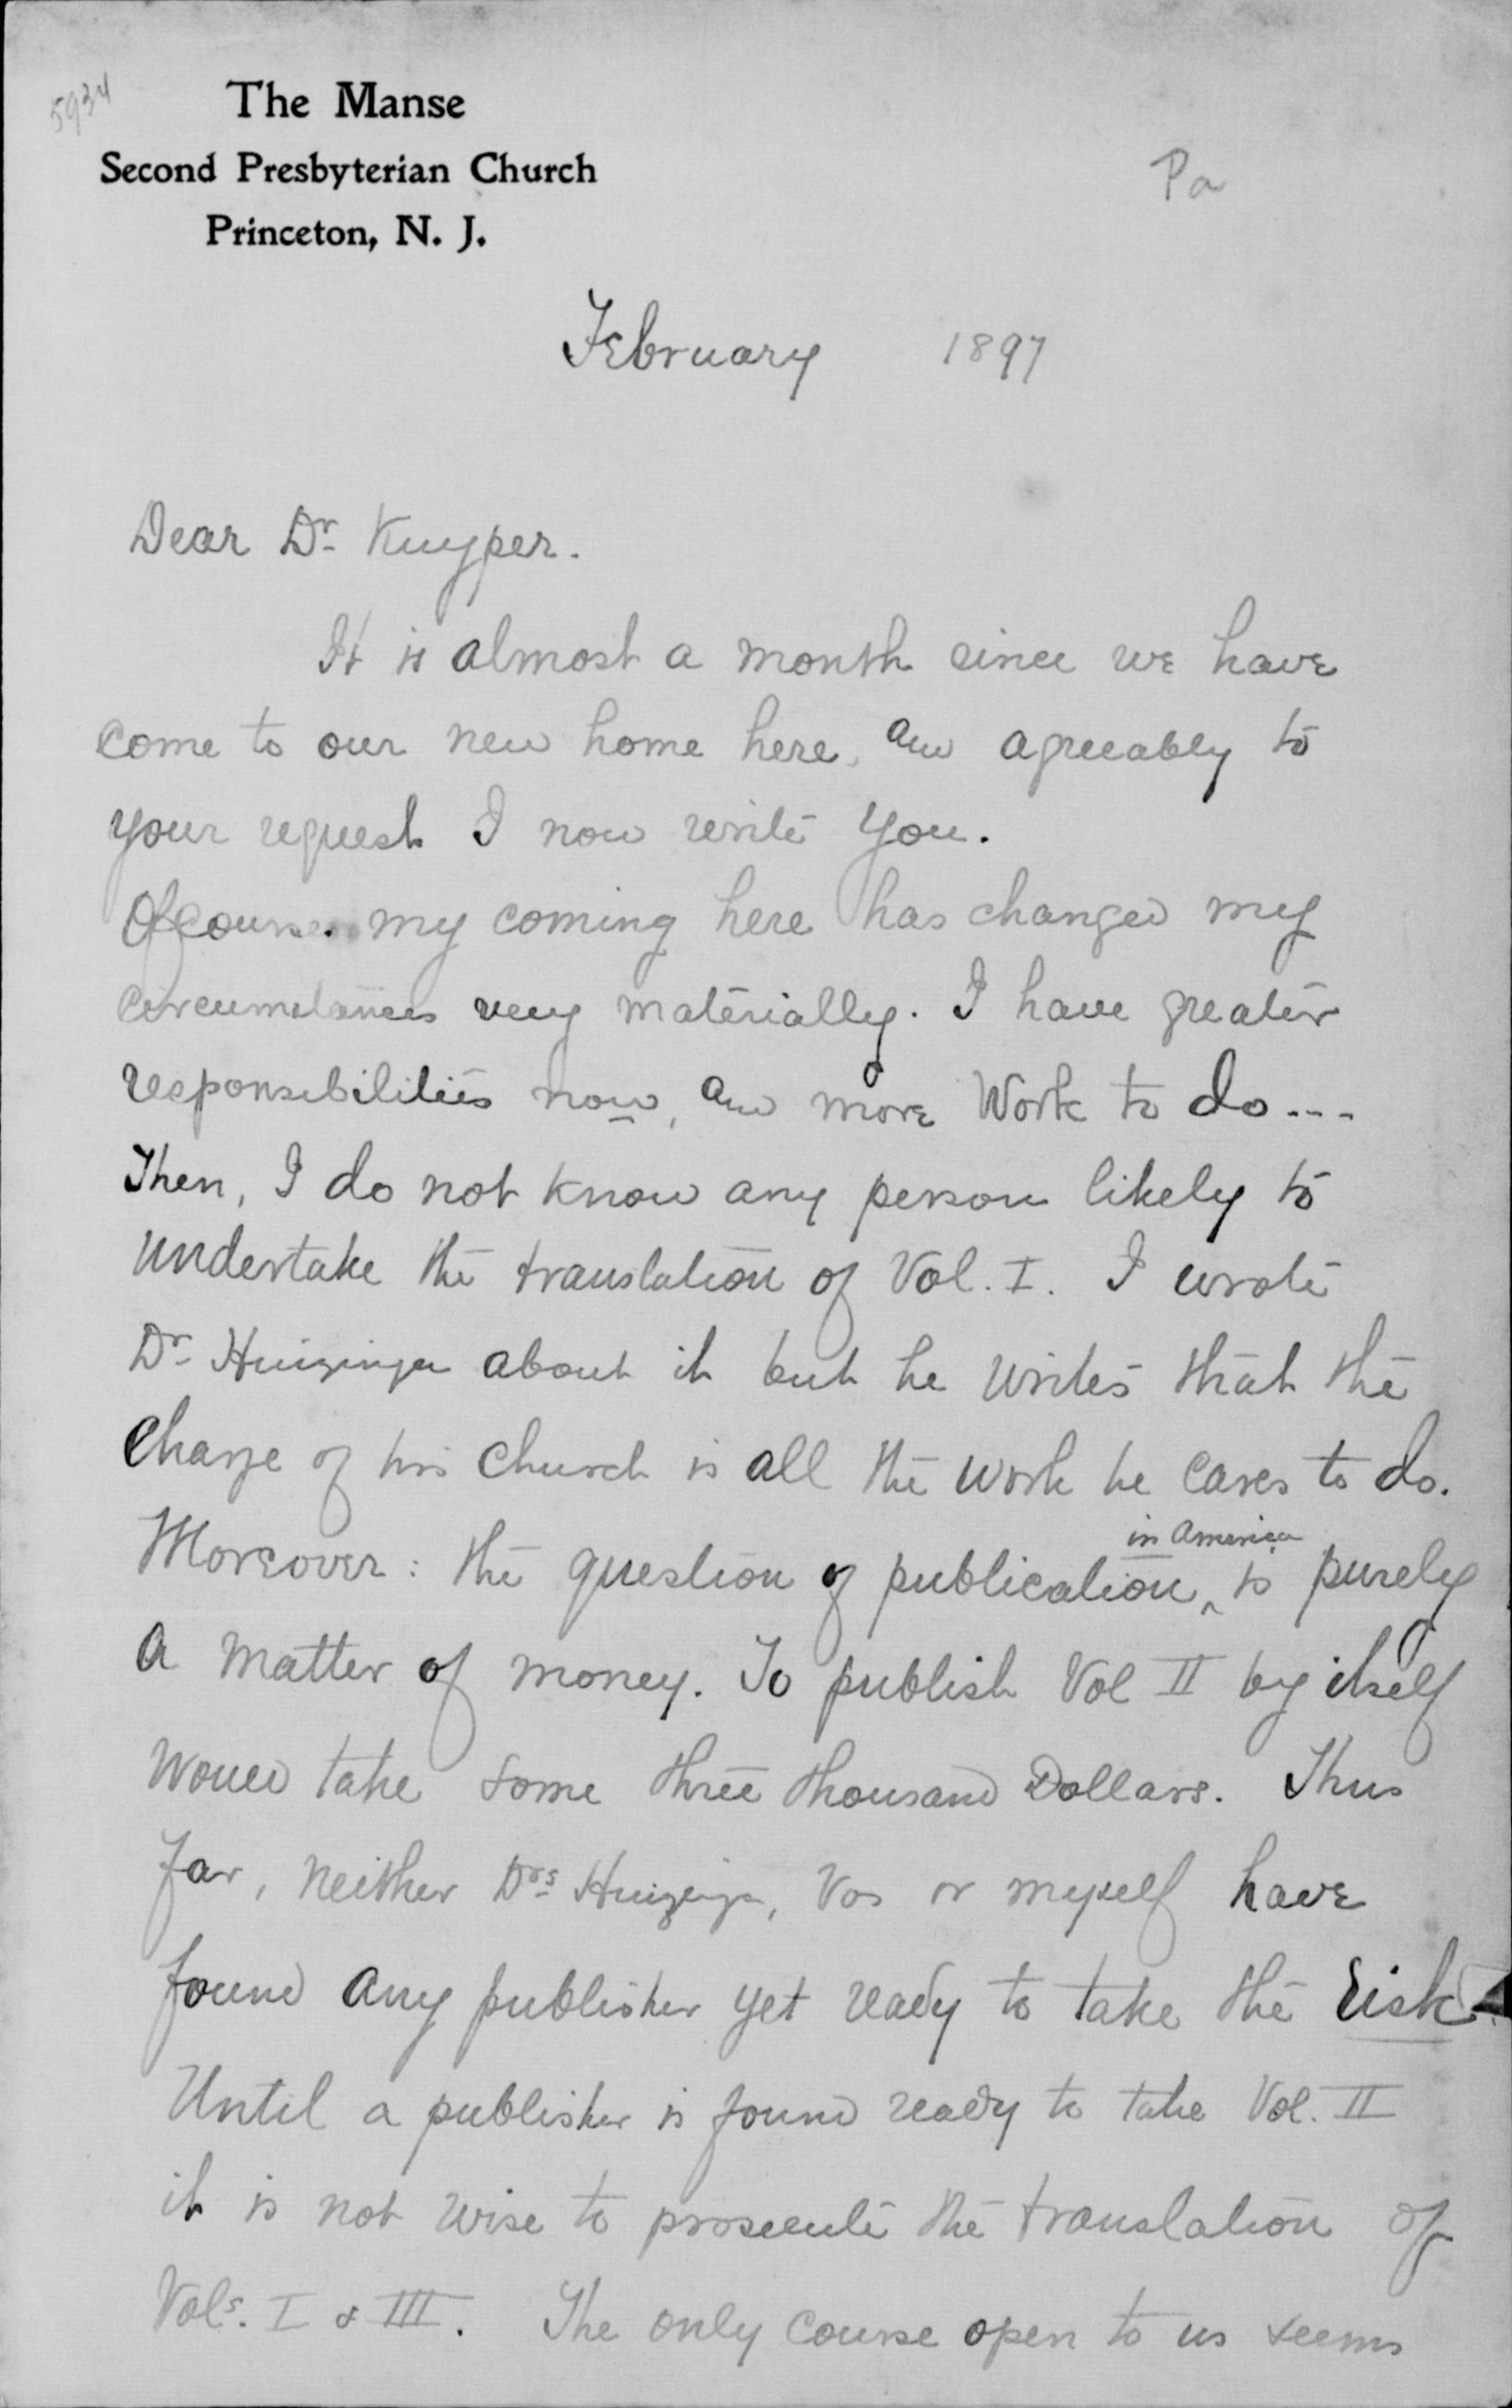 5934
The Manse
Second Presbyterian Church
Princeton, N. J.
Pa
February 1897
Dear Dr. Kuyper.
It is almost a month since we have
come to our new home here, and agreeably to
your request I now write you.
Of course my coming here has changed my
circumstances very materially. I have greater
responsibilities now, and more Work to do---
Then, I do not know any person likely to
undertake the translation of Vol. I. I wrote
Dr. Huizinga about it but he writes that the
charge of his church is all the work he cares to do.
Moreover: the question of publication in America is purely
a matter of money. To publish Vol II by itself
would take some three thousand Dollars. Thus
far, neither Drs Huizinga, Vos or myself have
found any publisher yet ready to take the risk.
Until a publisher is found ready to take Vol. II
it is not wise to prosecute the translation of
Vols. I & III. The only course open to us seems